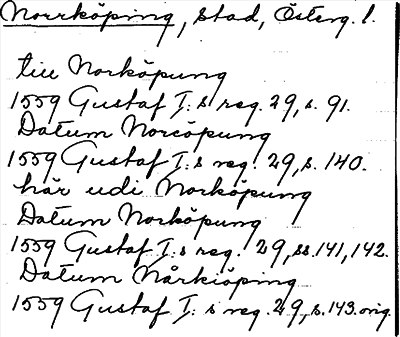 Norrköping, stad, Österg. l.
till Norköpung
1559 Gustaf I:s reg. 29, s. 91.
Datum Norcöpung
1559 Gustaf I:s reg. 29, s. 140.
här udi Norköpung
Datum Norköpung
1559 Gustaf I:s reg. 29, ss. 141, 142.
Datum Nårkiöping
1559 Gustaf I:s reg. 29, s. 143. orig.